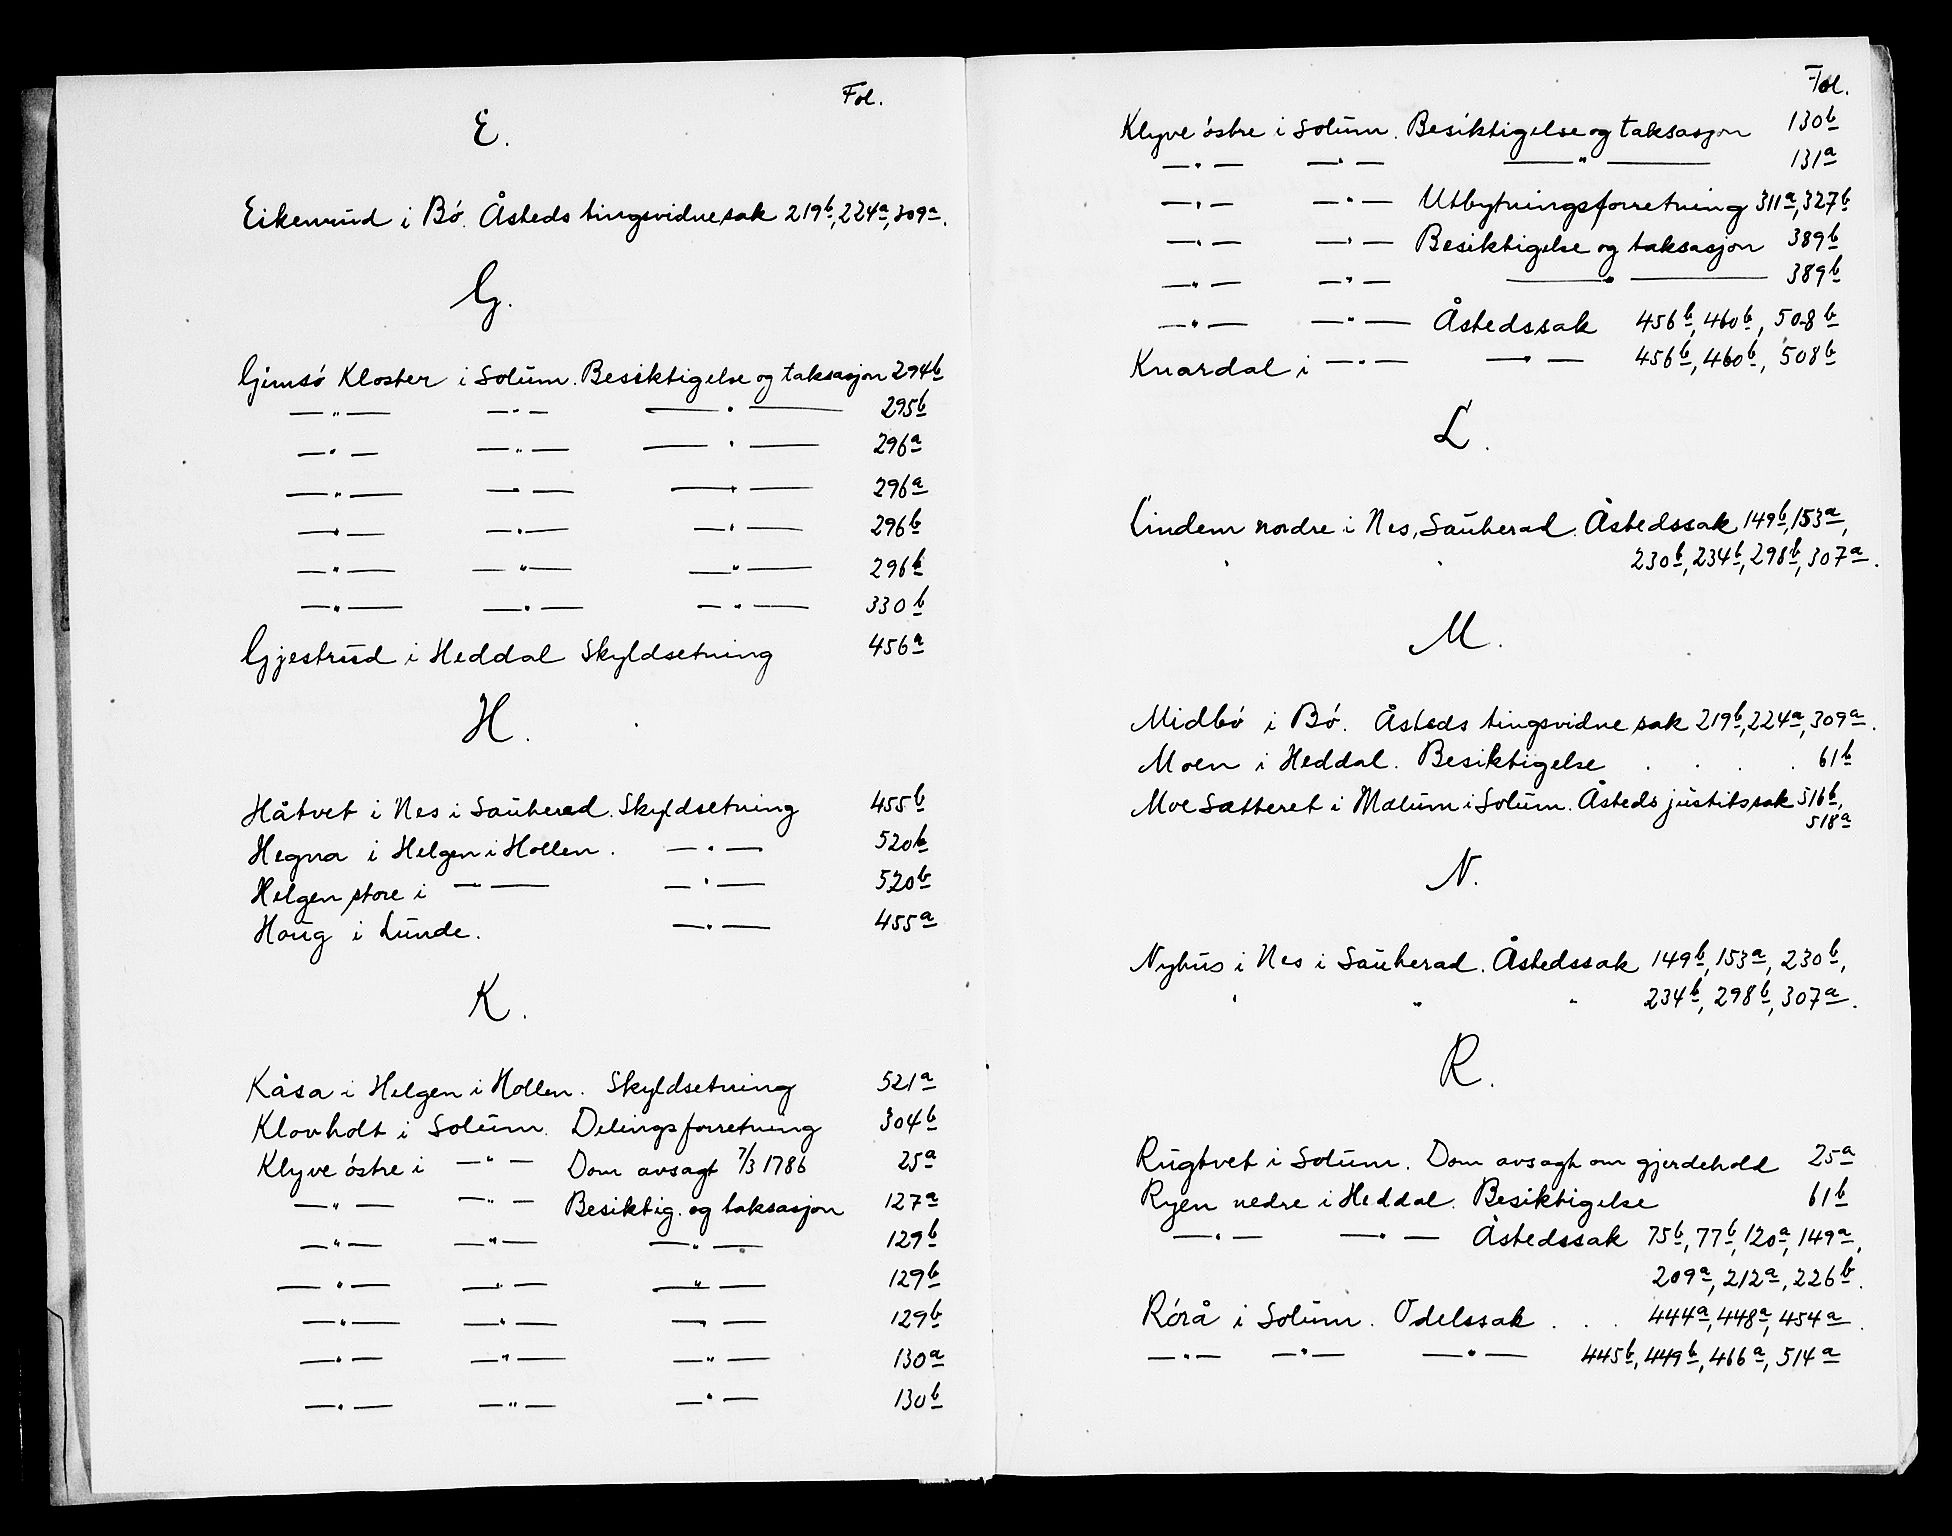 Fol.
E.
Eikenrud i Bø. Åsteds tingsvidnesak 219b, 224a, 309a.
G.
Gimsø Kloster i Solum. Besiktigelse og taksasjon 294b
—"— —"— —"— 295b
—"— —"— —"— 296a
—"— —"— —"— 296a
—"— —"— —"— 296b
—"— —"— —"— 296b
—"— —"— —"— 330b
Gjestrud i Heddal Skyldsetning 456a
H.
Håtvet i Nes i Sauherad. Skyldsetning 455b
Hegna i Helgen i Hollen. —"— 520b
Helgen store i —"— —"— 520b
Houg i Lunde. —"— 455a
K.
Kåsa i Helgen i Hollen. Skyldsetning 521a
Klovholt i Solum. Delingsforretning 304b
Klyve østre i —"— Dom avsagt 7/3 1786 25a
—"— —"— Besiktig. og taksasjon 127a
—"— —"— —"— 129b
—"— —"— —"— 129b
—"— —"— —"— 129b
—"— —"— —"— 130a
—"— —"— —"— 130b
Fol.
Klyve østre i Solum. Besiktigelse og taksasjon 130b
—"— —"— —"— 131a
—"— —"— Utbytningsforretning 311a, 327b
—"— —"— Besiktigelse og taksasjon 389b
—"— —"— —"— 389b
—"— —"— Åstedssak 456b, 460b, 508b
Knardal i —"— —"— 456b, 460b, 508b
L.
Lindem nordre i Nes, Sauherad. Åstedssak 149b, 153a,
" " 230b, 234b, 298b, 307a.
M.
Midbø i Bø. Åsteds tingsvidne sak 219b, 224a, 309a.
Moen i Heddal. Besiktigelse . . . . 61b
Moe Sætteret i Mælum i Solum. Åsteds justitssak 516b,
518a
N.
Nyhus i Nes i Sauherad. Åstedssak 149b, 153a, 230b,
" " " 234b, 298b, 307a.
R.
Rugtvet i Solum. Dom avsagt om gjerdehold 25a
Ryen nedre i Heddal. Besiktigelse 61b
—"— —"— Åstedssak 75b, 77b, 120a, 149a,
209a, 212a, 226b.
Rørå i Solum. Odelssak . . . 444a, 448a, 454a.
—"— —"— —"— 445b, 449b, 466a, 514a